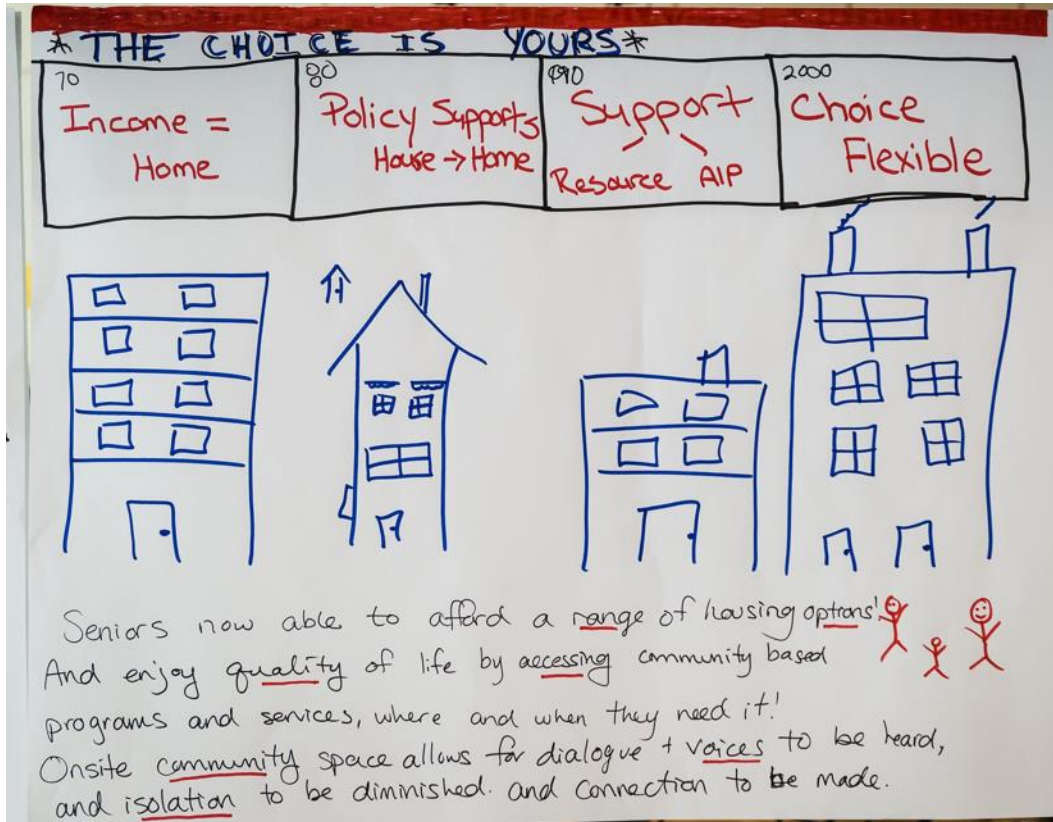 *THE CHOICE IS YOURS*
70
Income =
Home
80
Policy Supports
House → Home
1990
Support
Resource AIP
2000
Choice
Flexible
Seniors now able to afford a range of housing options!
And enjoy quality of life by accessing community based
programs and services, where and when they need it!
Onsite community space allows for dialogue + voices to be heard,
and isolation to be diminished. and connection to be made.